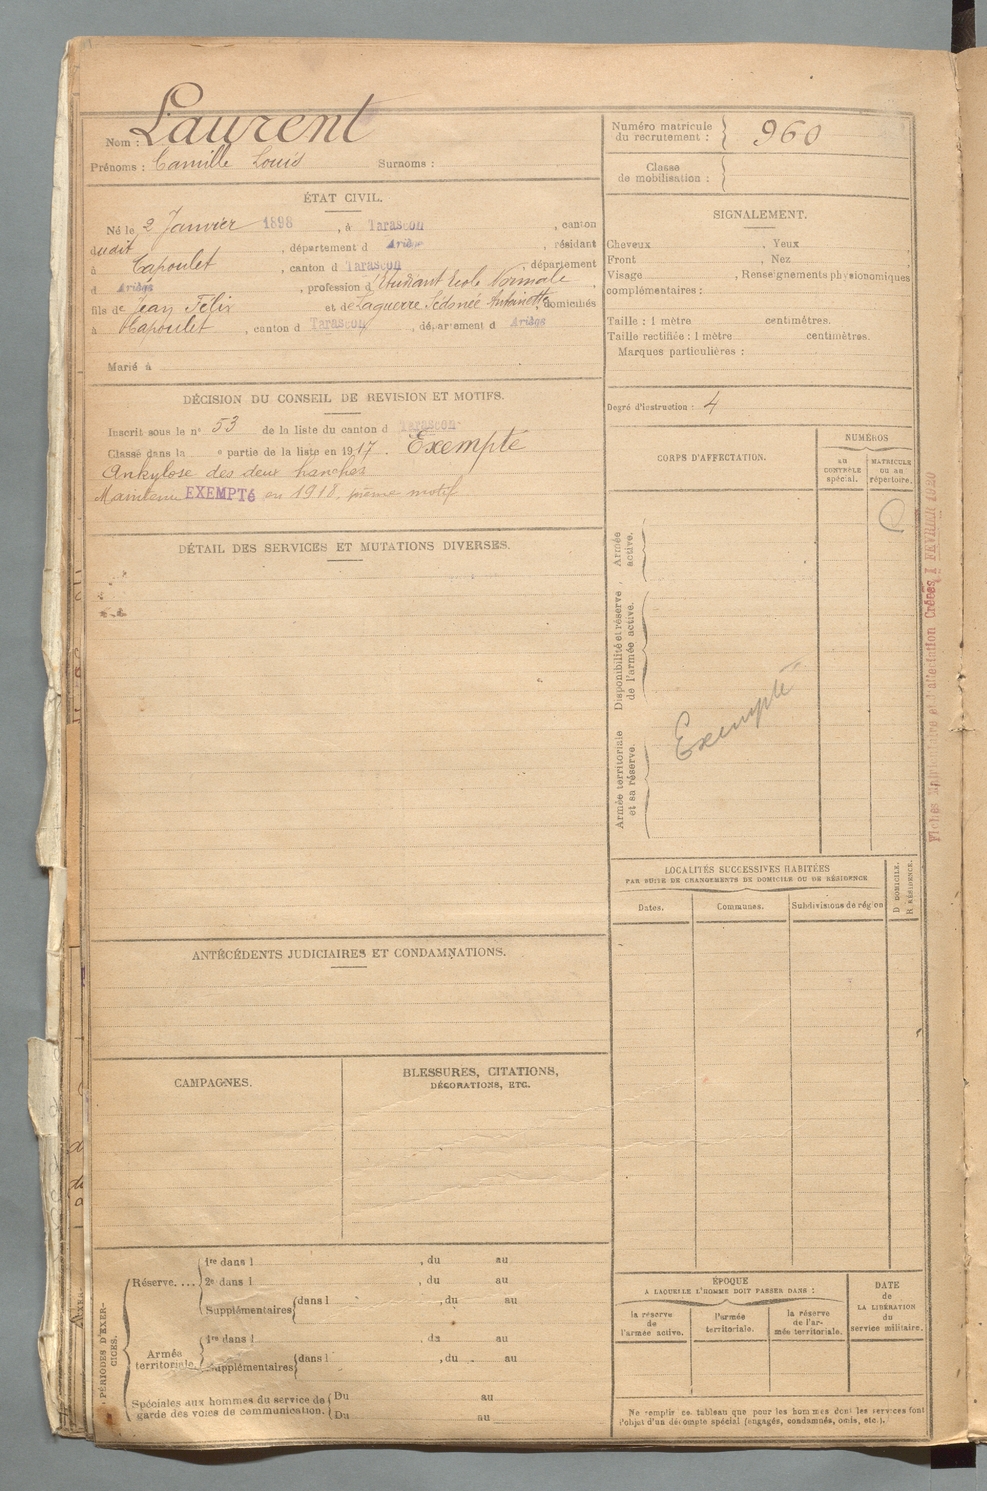 Nom : Laurent
Prénoms : Camille Louis Surnoms :
Numéro matricule du recrutement : 960
Classe de mobilisation :
ÉTAT CIVIL.
Né le 2 Janvier 1898, à Tarascon, canton
dudit, département d Ariège, résidant
à Capoulet, canton d Tarascon, département
d Ariège, profession d'Étudiant École Normale,
fils de Jean Félix et de Laguerre Sédonée Antoinette domiciliés
à Capoulet, canton d Tarascon, département d Ariège
Marié à
SIGNALEMENT.
Cheveux, Yeux,
Front, Nez,
Visage, Renseignements physionomiques
complémentaires :
Taille : 1 mètre centimètres.
Taille rectifiée : 1 mètre centimètres.
Marques particulières :
Degré d'instruction : 4
DÉCISION DU CONSEIL DE REVISION ET MOTIFS.
Inscrit sous le n° 53 de la liste du canton d Tarascon
Classé dans la e partie de la liste en 1917. Exempté
Ankylose des deux hanches
Maintenu EXEMPTé en 1918, même motif
CORPS D'AFFECTATION.
NUMÉROS
au CONTRÔLE spécial.
MATRICULE ou au répertoire.
Armée active.
Disponibilité et réserve de l'armée active.
Armée territoriale et sa réserve.
Exempté
Fiches Matriculaire et d'affectation Créées 1 FEVRIER 1920
DÉTAIL DES SERVICES ET MUTATIONS DIVERSES.
LOCALITÉS SUCCESSIVES HABITÉES
PAR SUITE DE CHANGEMENTS DE DOMICILE OU DE RÉSIDENCE
Dates. Communes. Subdivisions de région
D DOMICILE.
R RÉSIDENCE.
ANTÉCÉDENTS JUDICIAIRES ET CONDAMNATIONS.
CAMPAGNES.
BLESSURES, CITATIONS,
DÉCORATIONS, ETC.
PÉRIODES D'EXERCICES.
Réserve....
1re dans l, du au
2e dans l, du au
Supplémentaires dans l, du au
Armée territoriale.
1re dans l, du au
Supplémentaires dans l, du au
Spéciales aux hommes du service de garde des voies de communication.
Du au
Du au
ÉPOQUE
A LAQUELLE L'HOMME DOIT PASSER DANS :
la réserve de l'armée active.
l'armée territoriale.
la réserve de l'armée territoriale.
DATE de LA LIBÉRATION du service militaire.
Ne remplir ce tableau que pour les hommes dont les services font
l'objet d'un décompte spécial (engagés, condamnés, omis, etc.).